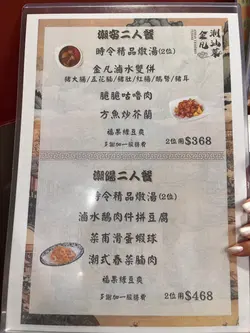 潮菜
潮窖二人餐
時令精品燉湯(2位)
金凡滷水雙併
豬大腸/五花腩/豬肚/紅腸/鵝腎/豬耳
脆脆咕嚕肉
方魚炒芥蘭
福果綠豆爽
多謝加一服務費
2位用$368
潮鑼二人餐
時令精品燉湯(2位)
滷水鵝肉件拼豆腐
菜甫滑蛋蝦球
潮式春菜腩肉
福果綠豆爽
多謝加一服務費
2位用$468